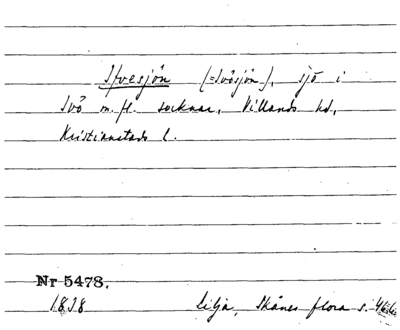 Ifvesjön (=Ivösjön), sjö i
Ivö m. fl. socknar, Villands hd,
Kristianstads l.
Nr 5478.
1838 Lilja, Skånes flora s.